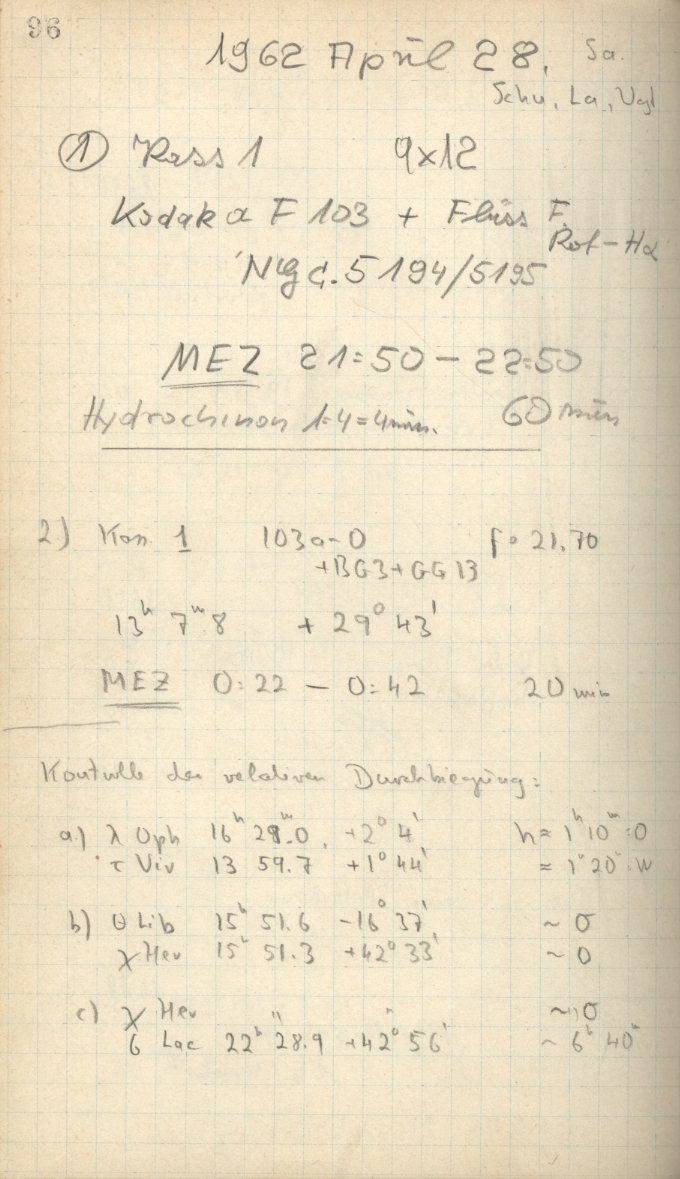 96
1962 April 28. Sa.
Schu, La, Vgl
1 Kass 1 9x12
Kodak α F 103 + Flüss F.
Rot-Hα
Ngc. 5194/5195
MEZ 21:50 - 22:50
Hydrochinon 1:4=4min. 60 min
2) Kon 1 103a-O f= 21.70
+BG3+GG13
13h 7m.8 + 29° 43'
MEZ 0:22 - 0:42 20 min
Kontrolle der relativen Durchbiegung:
a) λ Oph 16h 28m.0 +2° 4' h ≈ 1h 10m:O
τ Vir 13 59.7 +1° 44' ≈ 1h 20m:W
b) θ Lib 15h 51.6 -16° 37' ~ 0
χ Her 15h 51.3 +42° 33' ~ 0
c) χ Her " " ~ 0
6 Lac 22h 28.9 +42° 56' ~ 6h 40m